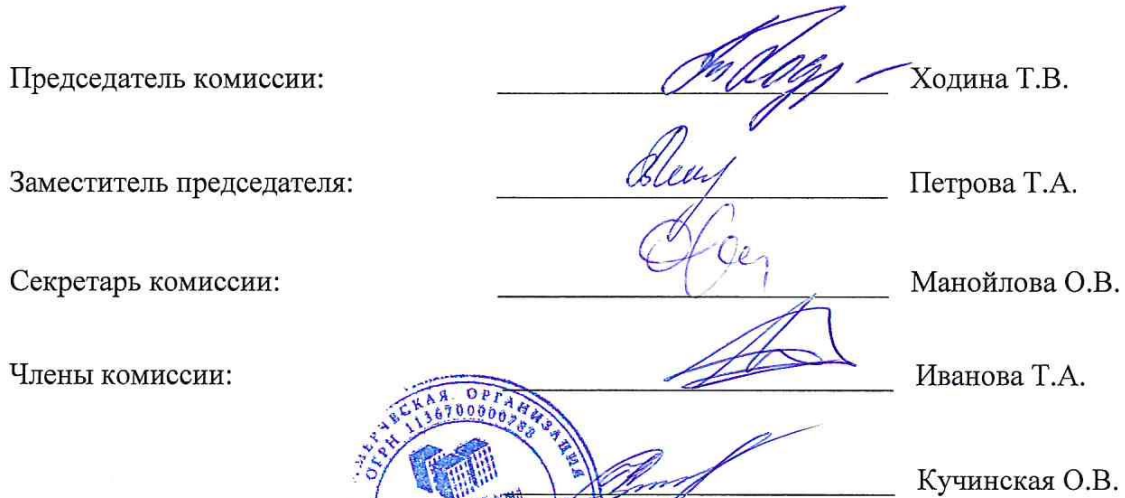 Председатель комиссии: Ходина Т.В.
Заместитель председателя: Петрова Т.А.
Секретарь комиссии: Манойлова О.В.
Члены комиссии: Иванова Т.А.
ОРГАНИЗАЦИЯ
ОГРН 1136700000788
Кучинская О.В.